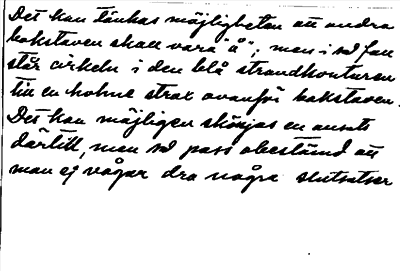 Det kan tänkas möjligheten att andra
bokstaven skall vara "å"; men i så fall
står cirkeln i den blå strandkonturen
till en holme strax ovanför bokstaven.
Det kan möjligen skönjas en ansats
därtill, men så pass obestämd att
man ej vågar dra några slutsatser